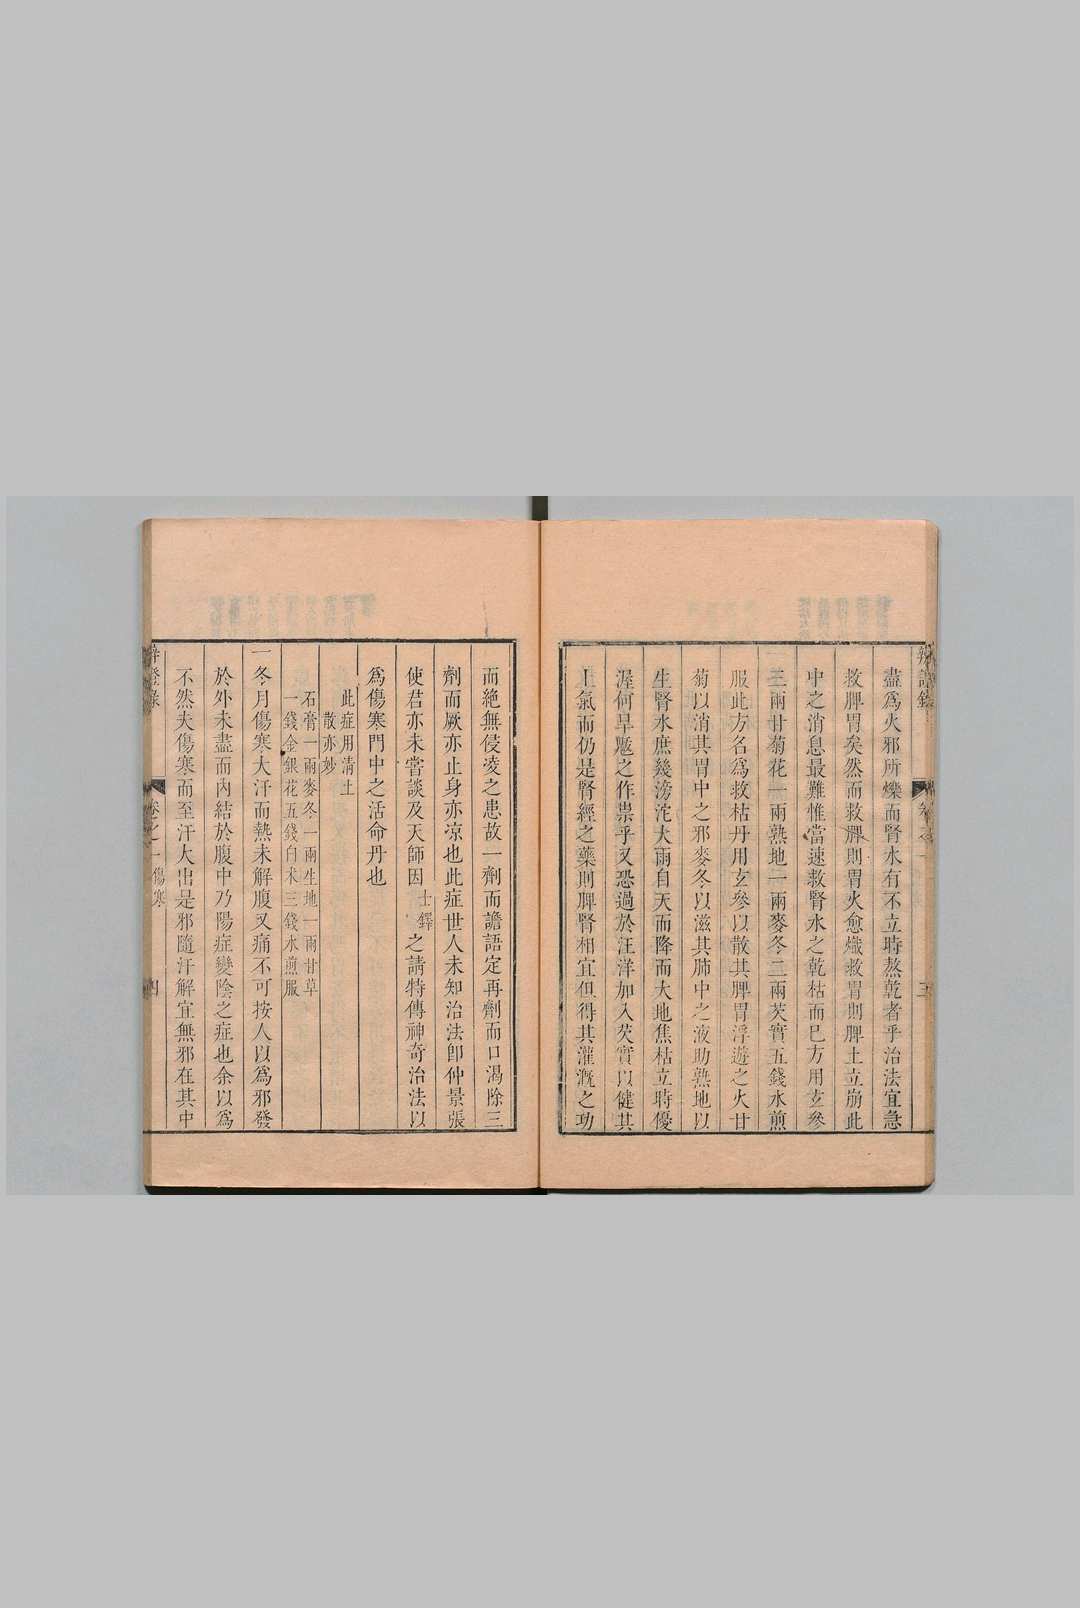 盡爲火邪所爍而腎水有不立時熬乾者乎治法宜急
救脾胃矣然而救脾則胃火愈熾救胃則脾土立崩此
中之消息最難惟當速救腎水之乾枯而已方用玄參
三兩甘菊花一兩熟地一兩麥冬二兩芡實五錢水煎
服此方名爲救枯丹用玄參以散其脾胃浮遊之火甘
菊以消其胃中之邪麥冬以滋其肺中之液助熟地以
生腎水庶幾滂沱大雨自天而降而大地焦枯立時優
渥何旱魃之作祟乎又恐過於汪洋加入芡實以健其
土氣而仍是腎經之藥則脾腎相宜但得其灌漑之功
而絶無侵凌之患故一劑而譫語定再劑而口渴除三
劑而厥亦止身亦凉也此症世人未知治法卽仲景張
使君亦未嘗談及天師因士鐸之請特傳神奇治法以
爲傷寒門中之活命丹也
此症用清土
散亦妙
石膏一兩麥冬一兩生地一兩甘草
一錢金銀花五錢白朮三錢水煎服
一冬月傷寒大汗而熱未解腹又痛不可按人以爲邪發
於外未盡而内結於腹中乃陽症變陰之症也余以爲
不然夫傷寒而至汗大出是邪隨汗解宜無邪在其中
卷之一傷寒
四